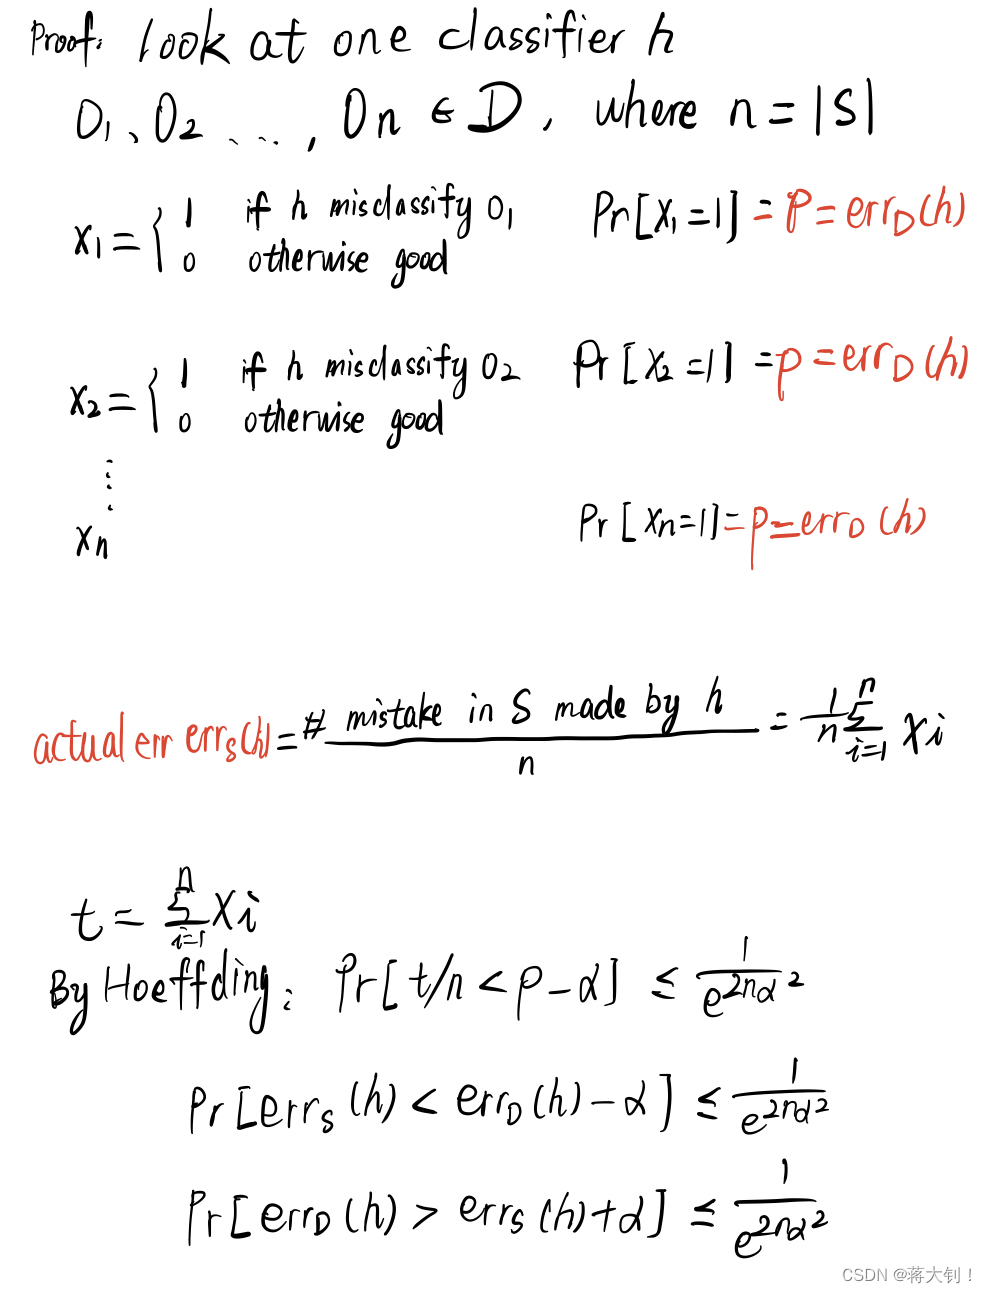 Proof: look at one classifier h
O₁、O₂ ..., On ∈ D, where n = |S|
x₁ = { 1 if h misclassify O₁ Pr[X₁=1] = P = err_D(h)
0 otherwise good
x₂ = { 1 if h misclassify O₂ Pr[X₂=1] = p = err_D(h)
0 otherwise good
⋮
xn Pr[Xn=1] = p = err_D(h)
actual err err_S(h) = # mistake in S made by h / n = 1/n Σ_{i=1}^{n} Xi
t = Σ_{i=1}^{n} Xi
By Hoeffding: Pr[t/n < p - α] ≤ 1/e^{2nα²}
Pr[err_S(h) < err_D(h) - α] ≤ 1/e^{2nα²}
Pr[err_D(h) > err_S(h) + α] ≤ 1/e^{2nα²}
CSDN @蒋大钊！